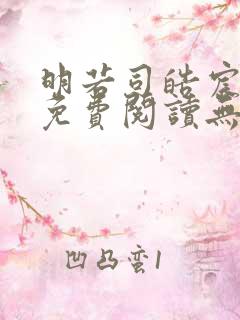 明若司皓宸
免費閱讀無
凹凸蛮1